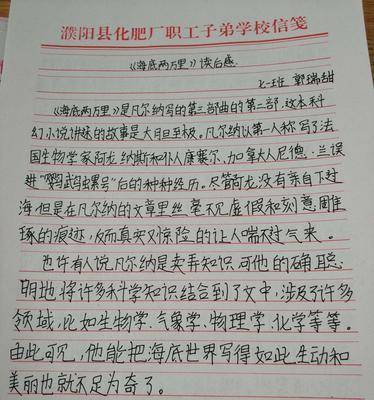 濮阳县化肥厂职工子弟学校信笺
《海底两万里》读后感
七一班 郭瑞甜
《海底两万里》是凡尔纳写的第三部曲的第二部,这本科
幻小说讲述的故事是大胆至极。凡尔纳以第一人称写了法
国生物学家阿龙纳斯和仆人康塞尔、加拿大人尼德·兰误
进“鹦鹉螺号”后的种种经历。尽管阿龙没有亲自下过
海,但是在凡尔纳的文章里丝毫不见虚假和刻意雕
琢的痕迹,反而真实又惊险的让人喘不过气来。
也许有人说凡尔纳是卖弄知识,可他的确聪
明地将许多科学知识结合到了文中,涉及了许多
领域,比如生物学、气象学、物理学、化学等等。
由此可见,他能把海底世界写得如此生动和
美丽也就不足为奇了。